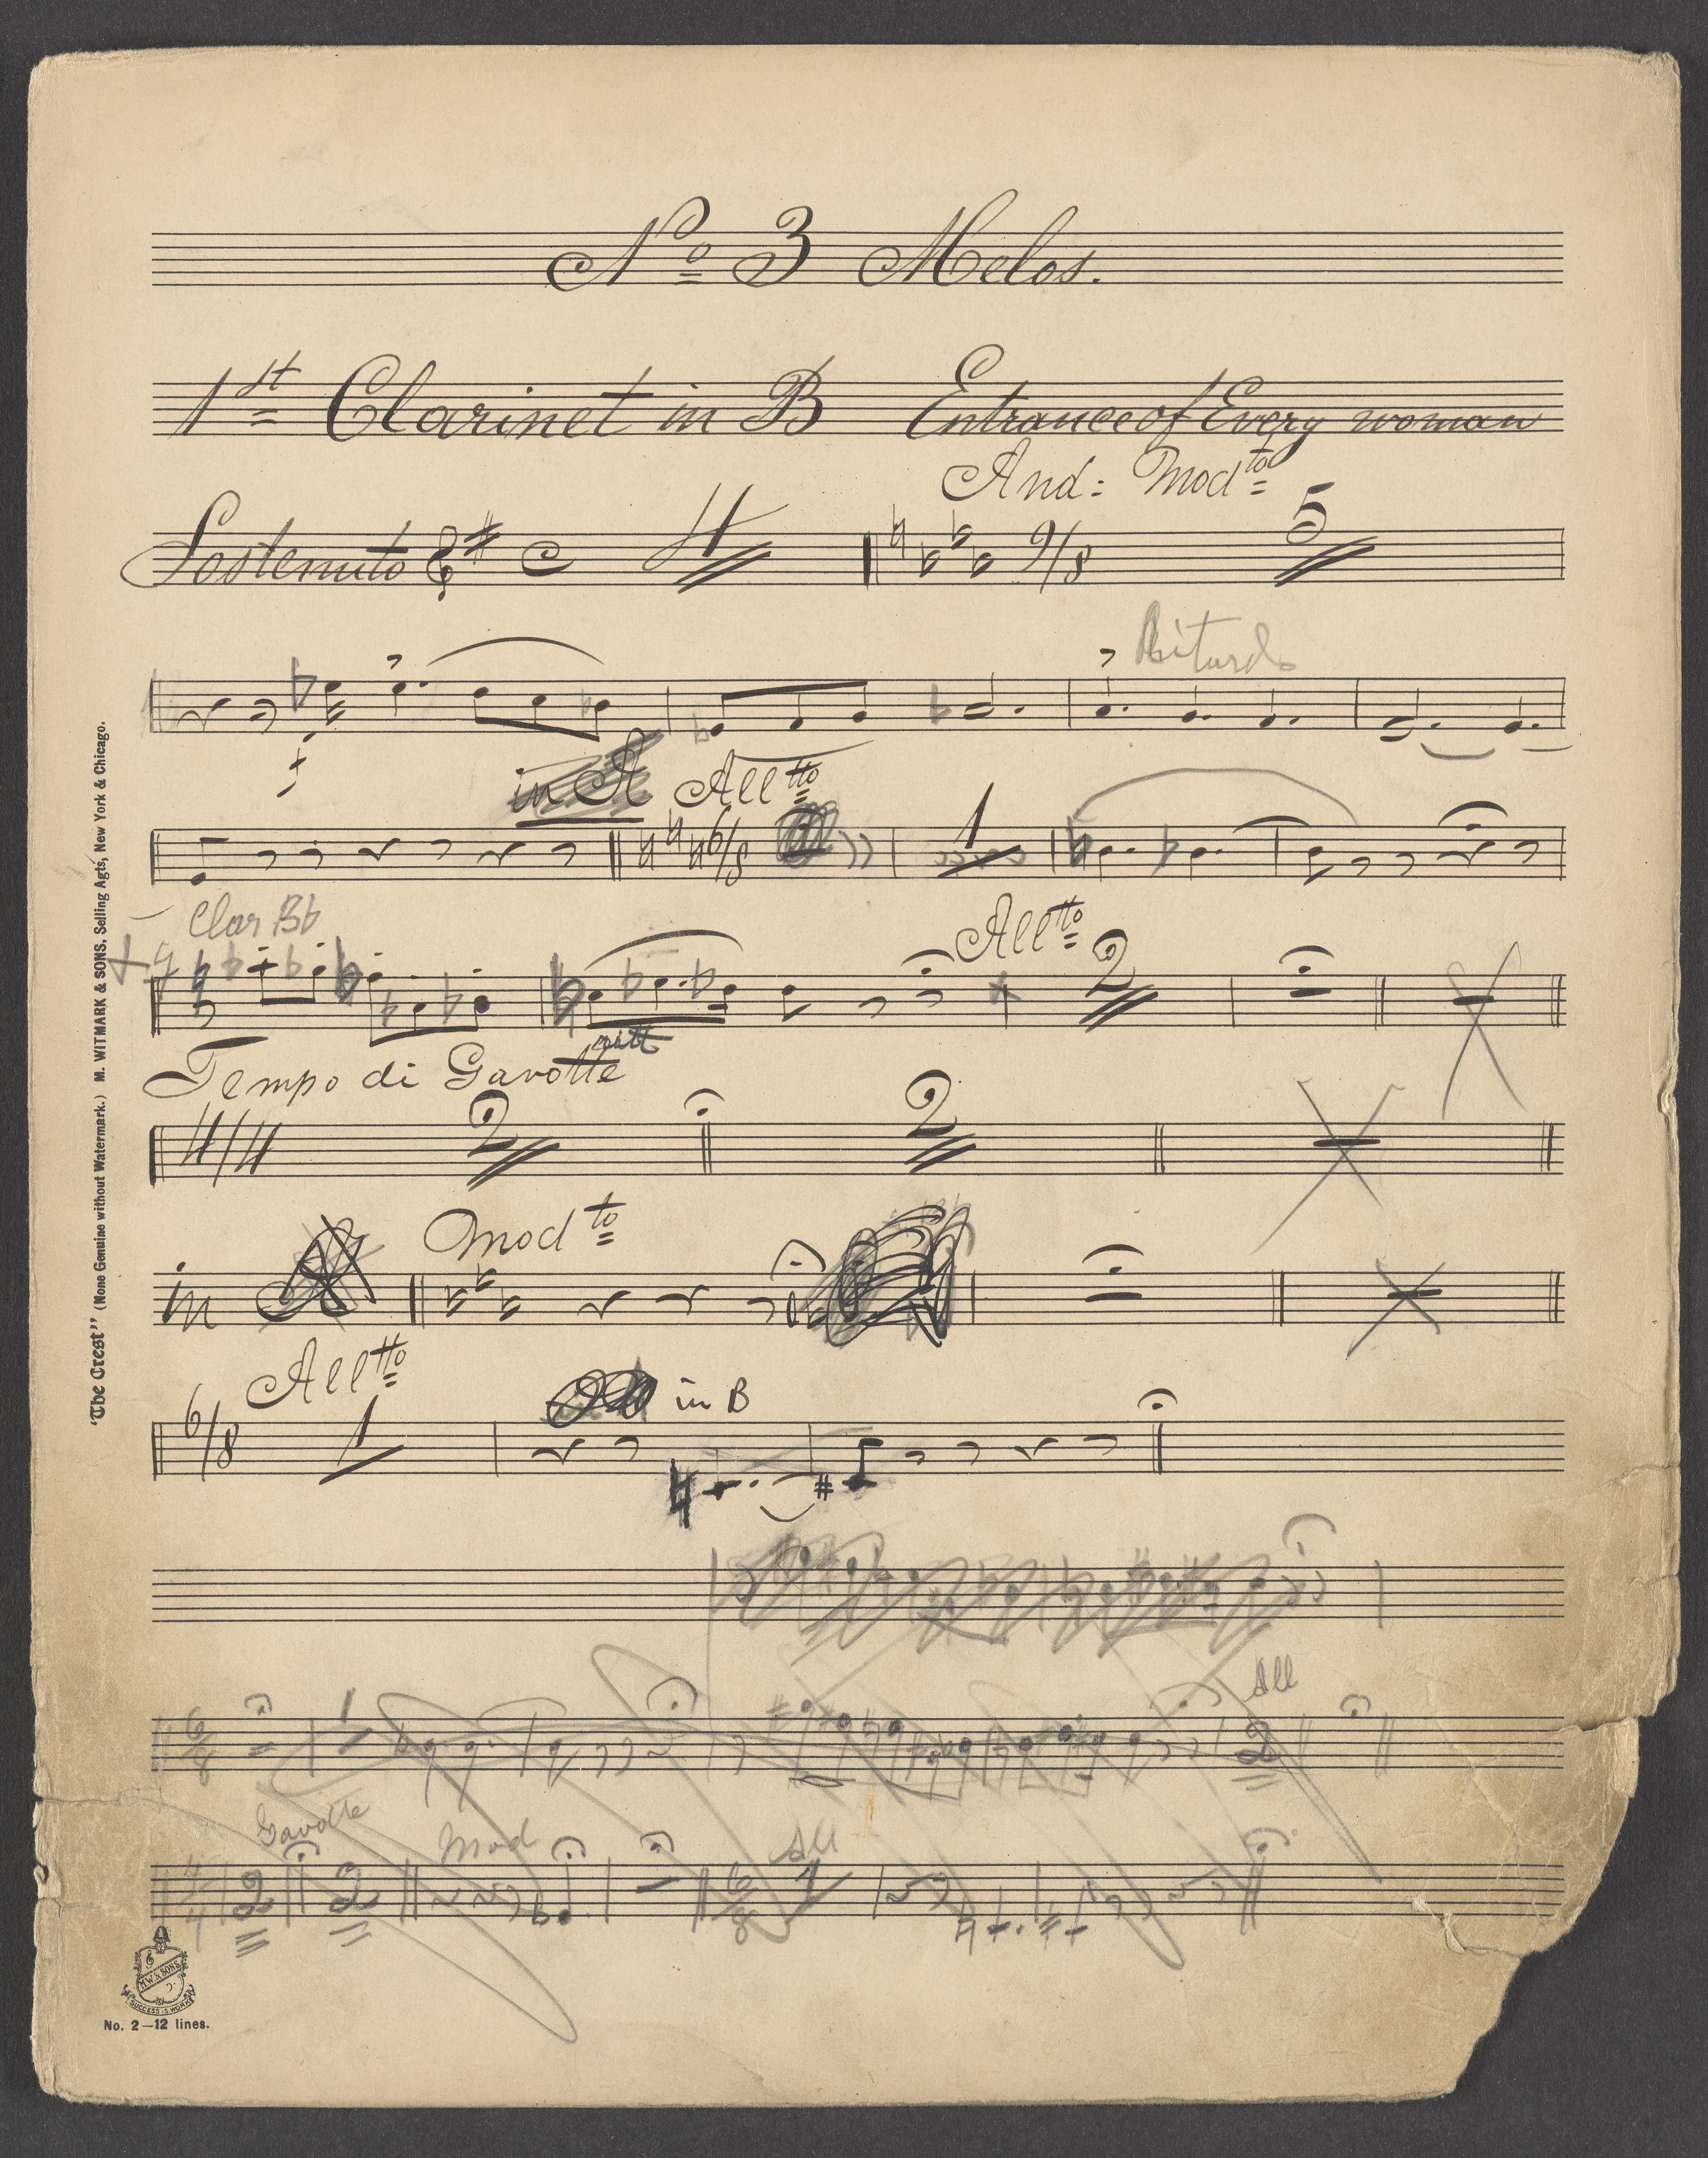 No 3 Melos.
1st Clarinet in B Entrance of Every woman
And: Modto
Sostenuto C 4 9/8 5
Ritard
in A Alltto
6/8 1
Clar Bb
Alltto
2
Tempo di Gavotte
4/4 2 2
in A Modto
Alltto
6/8 1 in B
All
6/8 1 2
Gavotte Mod All
4/4 2 2 6/8 1
"The Crest" (None Genuine without Watermark.) M. WITMARK & SONS, Selling Agts, New York & Chicago.
M.W. & SONS
SUCCESS IS WORK
No. 2—12 lines.